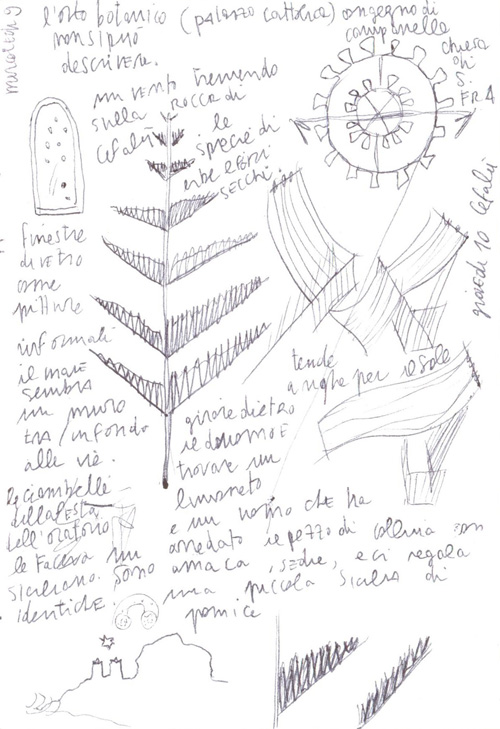 mercoledì 9
l'orto botanico (palazzo cattolica)
non si può
descrivere.
congegno di
campanelle
chiesa
di
S.
FRA
un vento tremendo
sulla rocca di
Cefalù
le
specie di
erbe
secchi.
giovedì 10 Cefalù
finestre
di vetro
come
pitture
informali
il mare
sembra
un muro
tra / in fondo
alle vie.
tende
a righe per il sole
girare dietro
il duomo e
trovare un
limoneto
e un uomo che ha
arredato il pezzo di collina con
amaca, sedie, e ci regala
una piccola Sicilia di
pomice
le ciambelle
della festa
dell'oratorio
le facevamo
siciliano. sono
identiche.